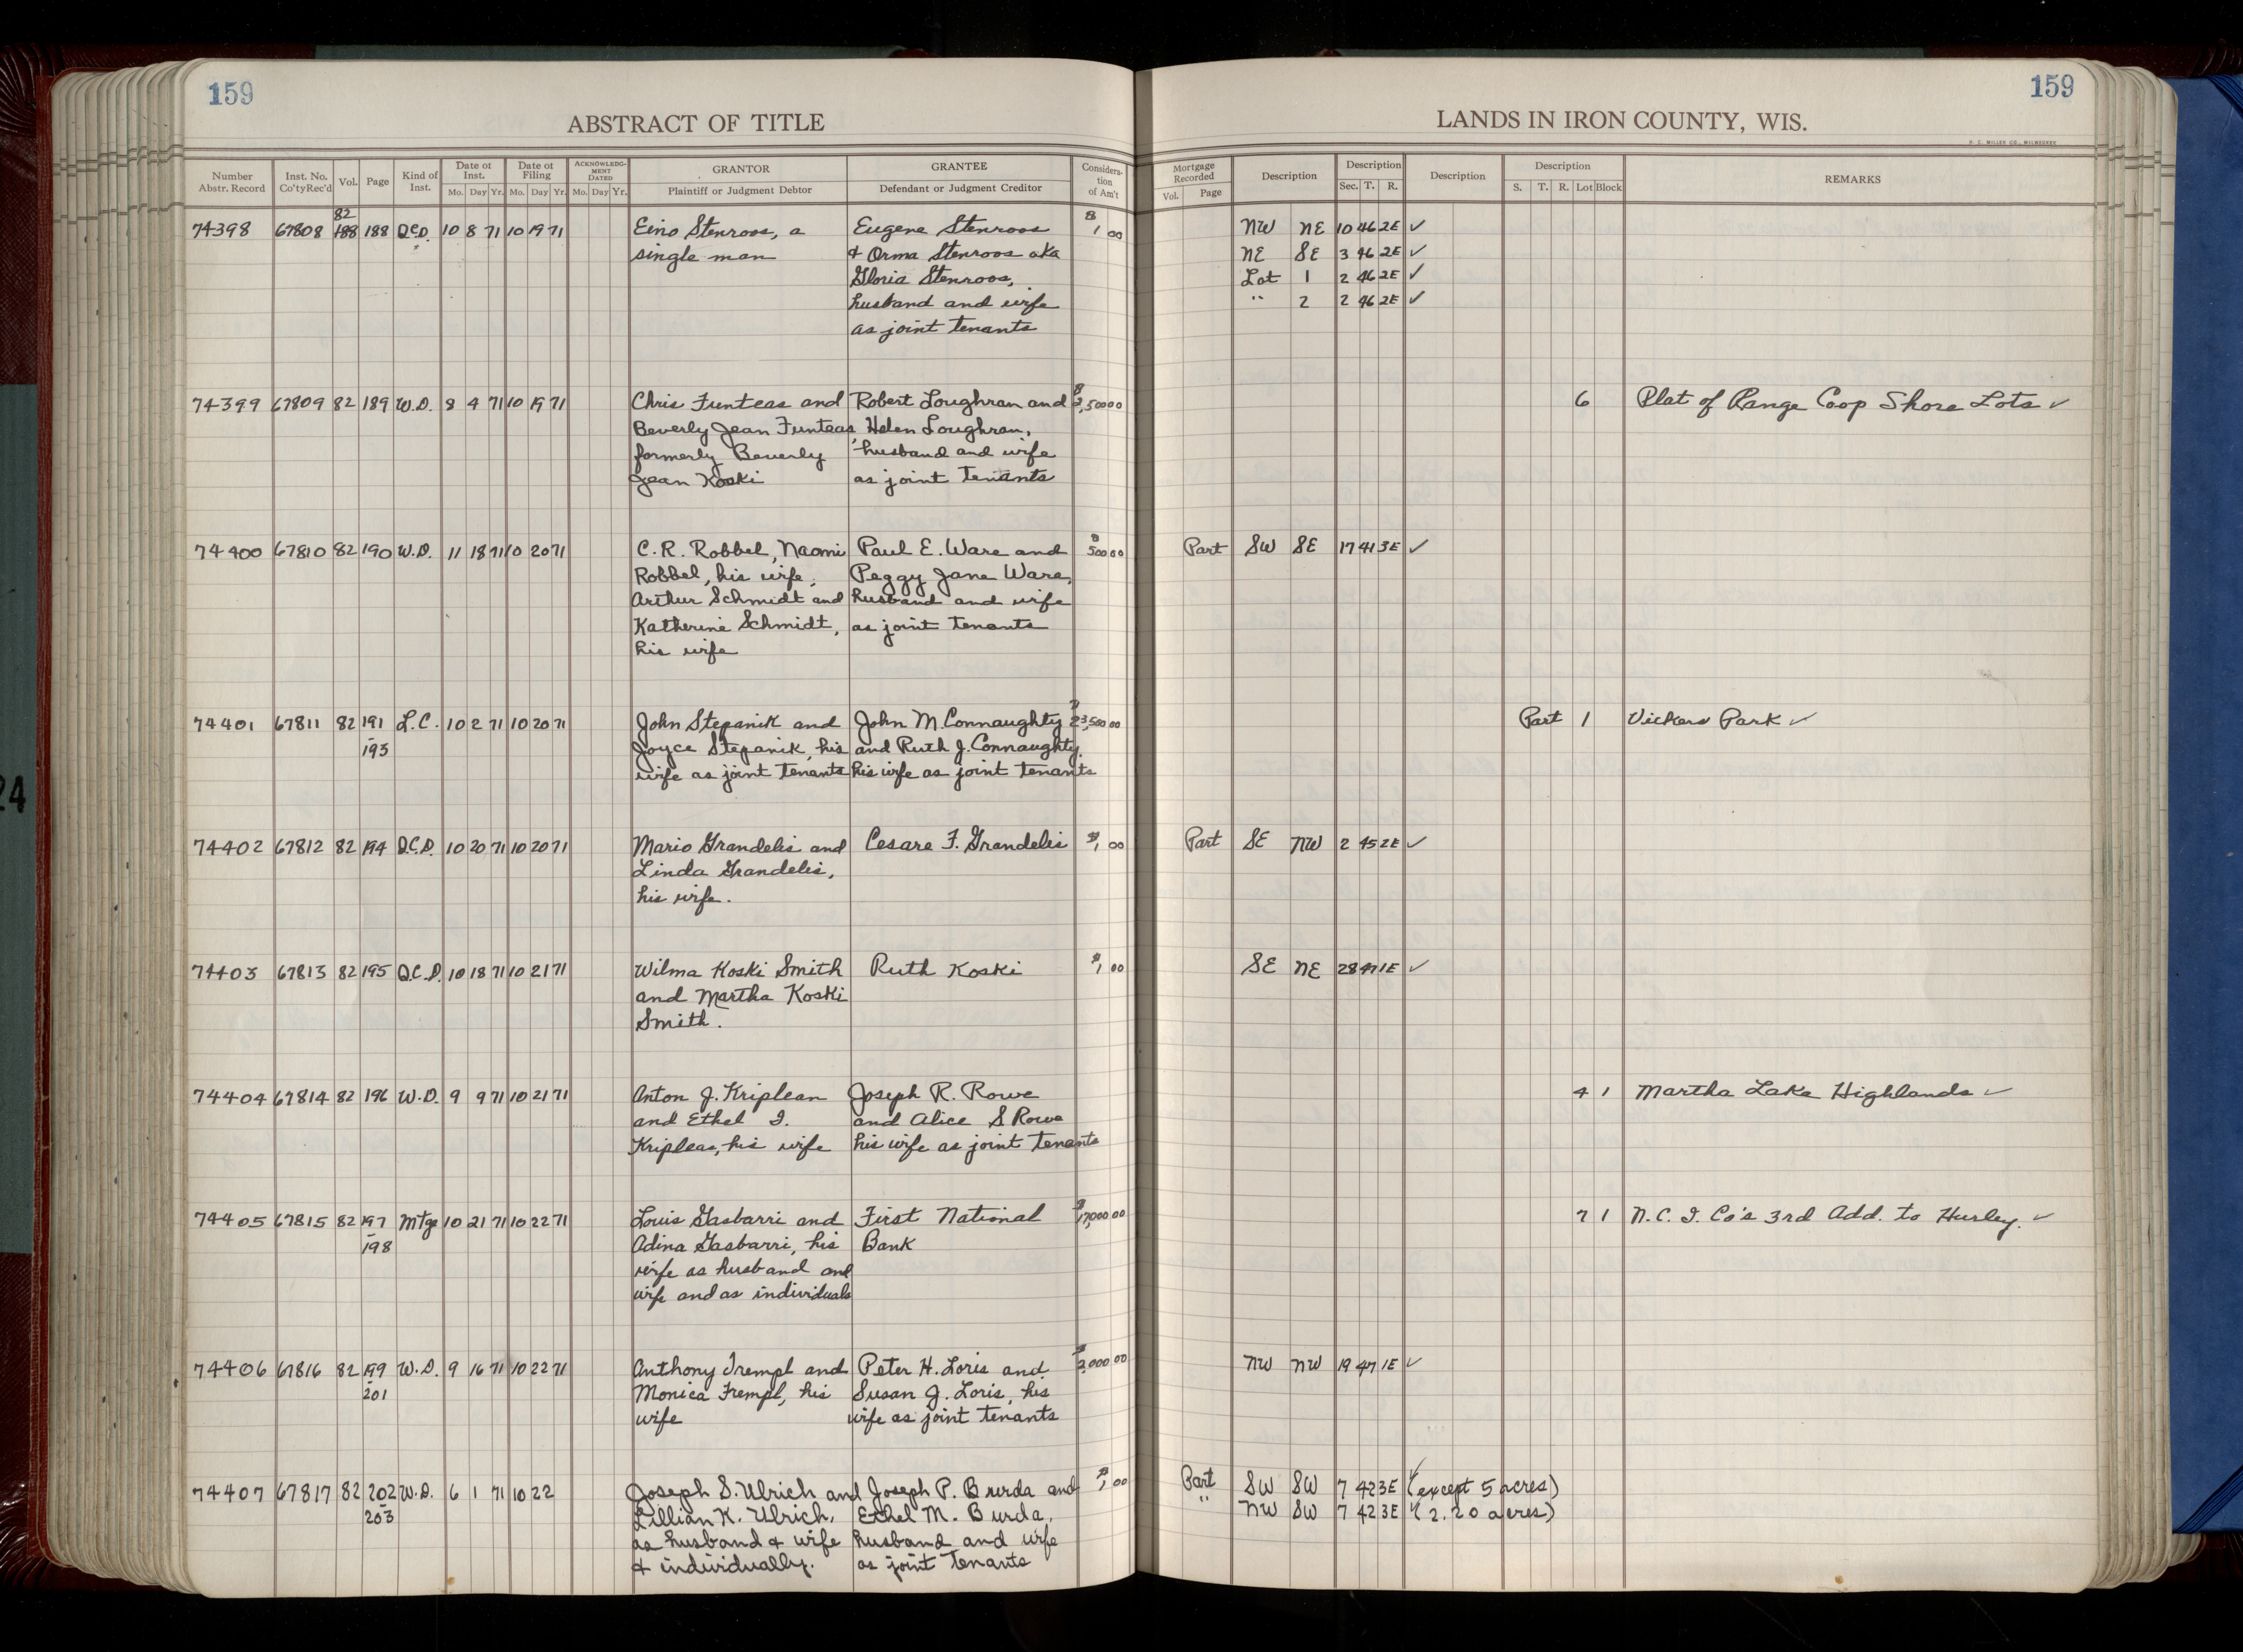 159
159
ABSTRACT OF TITLE
LANDS IN IRON COUNTY, WIS.
Number Abstr. Record | Inst. No. Co'ty Rec'd | Vol. | Page | Kind of Inst. | Date of Inst. Mo. Day Yr. | Date of Filing Mo. Day Yr. | ACKNOWLEDGMENT DATED Mo. Day Yr. | GRANTOR Plaintiff or Judgment Debtor | GRANTEE Defendant or Judgment Creditor | Consideration of Am't | Mortgage Recorded Vol. Page | Description | Description Sec. T. R. | Description | Description S. T. R. Lot Block | REMARKS
82
74398 67808 188 188 Q.C.D. 10 8 71 10 19 71 Eino Stenroos, a Eugene Stenroos $1 00 NW NE 10 46 2E ✓
single man & Orma Stenroos aka NE SE 3 46 2E ✓
Gloria Stenroos, Lot 1 2 46 2E ✓
husband and wife " 2 2 46 2E ✓
as joint tenants
74399 67809 82 189 W.D. 8 4 71 10 19 71 Chris Funteas and Robert Loughran and $2,500 00 6 Plat of Range Coop Shore Lots ✓
Beverly Jean Funteas, Helen Loughran,
formerly Beverly husband and wife
Jean Koski as joint tenants
74400 67810 82 190 W.D. 11 18 71 10 20 71 C.R. Robbel, Naomi Paul E. Ware and $500 00 Part SW SE 17 41 3E ✓
Robbel, his wife, Peggy Jane Ware,
Arthur Schmidt and husband and wife
Katherine Schmidt, as joint tenants
his wife
74401 67811 82 191 L.C. 10 2 71 10 20 71 John Stepanik and John M. Connaughty $23,500 00 Part 1 Vickers Park ✓
-193 Joyce Stepanik, his and Ruth J. Connaughty,
wife as joint tenants his wife as joint tenants
74402 67812 82 194 Q.C.D. 10 20 71 10 20 71 Mario Grandelis and Cesare F. Grandelis $1 00 Part SE NW 2 45 2E ✓
Linda Grandelis,
his wife.
74403 67813 82 195 Q.C.D. 10 18 71 10 21 71 Wilma Koski Smith Ruth Koski $1 00 SE NE 28 47 1E ✓
and Martha Koski
Smith.
74404 67814 82 196 W.D. 9 9 71 10 21 71 Anton J. Kriplean Joseph R. Rowe 4 1 Martha Lake Highlands ✓
and Ethel I. and Alice S Rowe
Kriplean, his wife his wife as joint tenants
74405 67815 82 197 Mtge 10 21 71 10 22 71 Louis Gasbarri and First National $17,000 00 7 1 N.C.I. Co's 3rd Add. to Hurley. ✓
-198 Adina Gasbarri, his Bank
wife as husband and
wife and as individuals
74406 67816 82 199 W.D. 9 16 71 10 22 71 Anthony Trempl and Peter H. Loris and $2,000 00 NW NW 19 47 1E ✓
-201 Monica Trempl, his Susan J. Loris, his
wife wife as joint tenants
74407 67817 82 202 W.D. 6 1 71 10 22 Joseph S. Ulrich and Joseph P. Burda and $1 00 Part SW SW 7 42 3E ✓ (except 5 acres)
-203 Lillian K. Ulrich, Ethel M. Burda, " NW SW 7 42 3E ✓ (2.20 acres)
as husband & wife husband and wife
& individually. as joint tenants